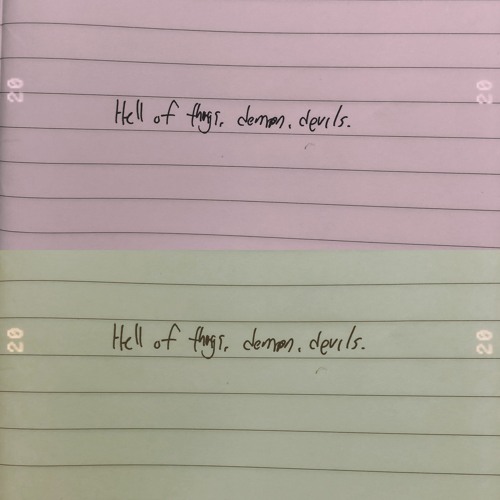 20 20
Hell of things, demon, devils.
20 20
Hell of things, demon, devils.